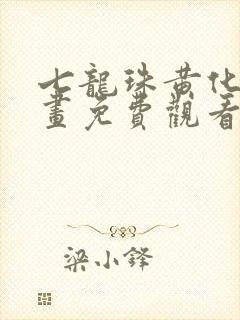 七龍珠黃化
畫免費觀看
梁小鋒